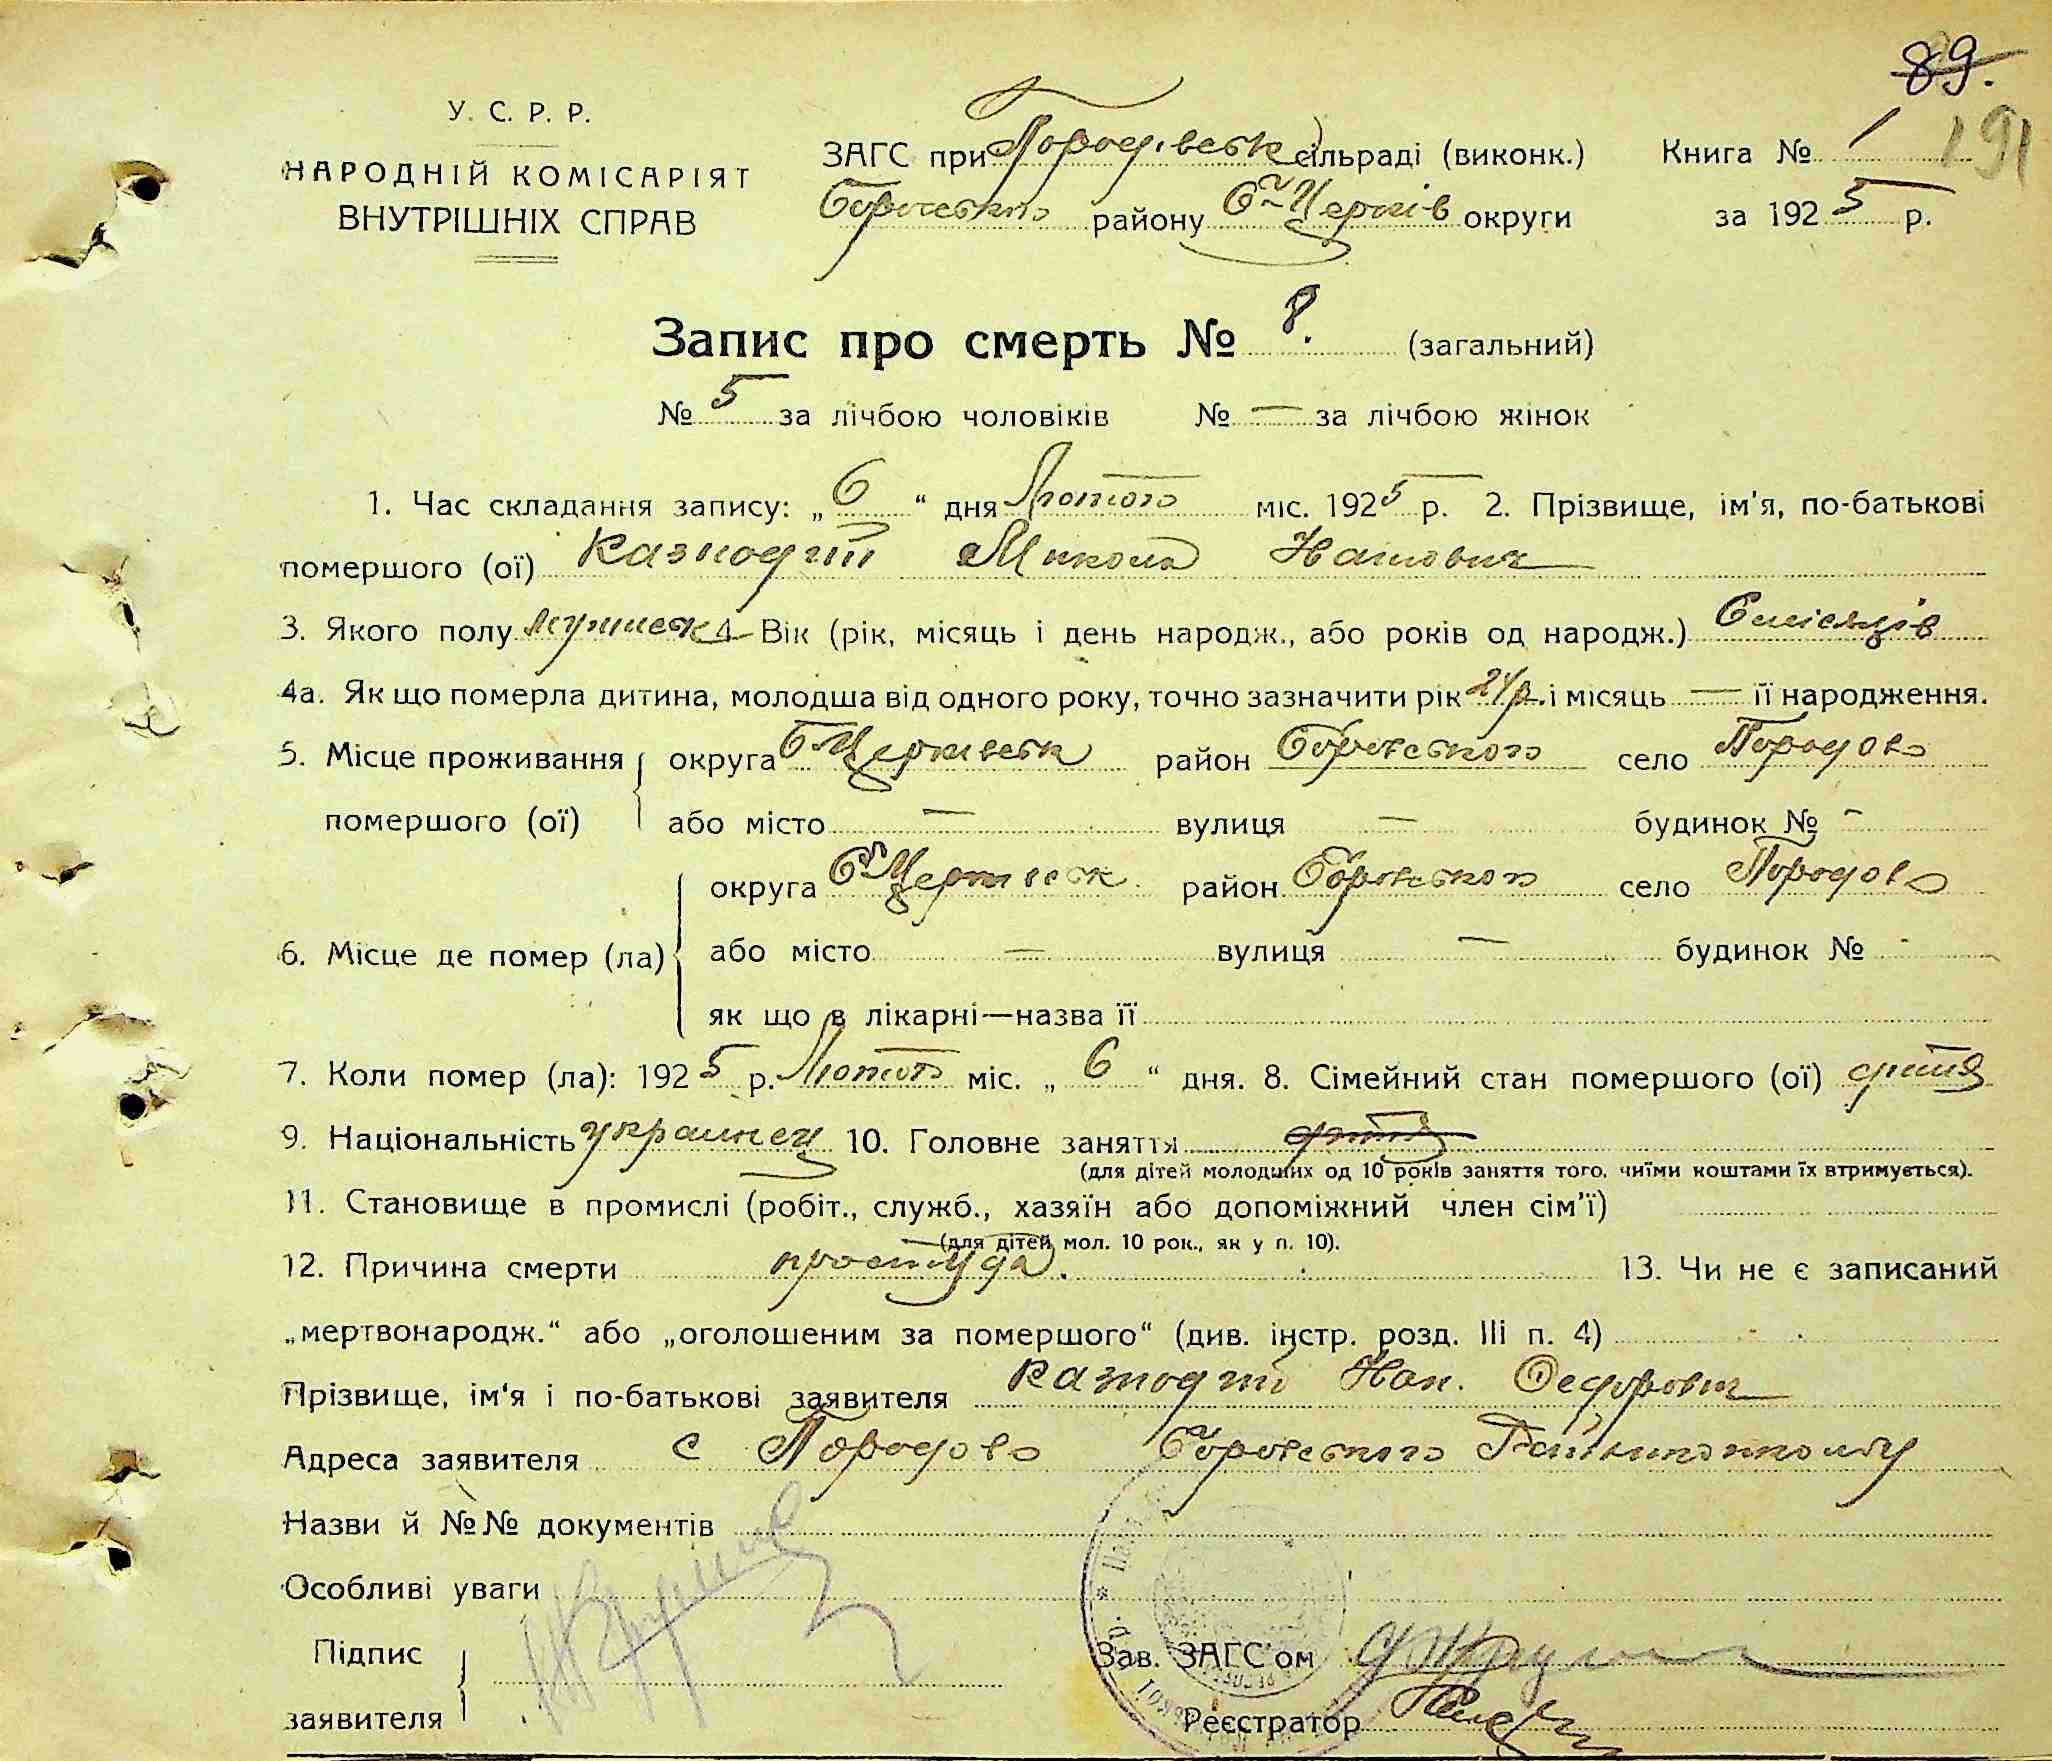 89.
191
У. С. Р. Р.
НАРОДНІЙ КОМІСАРІЯТ
ВНУТРІШНІХ СПРАВ
ЗАГС при Породівськ сільраді (виконк.) Книга № 1
району Б-Церків округи за 1925 р.
Запис про смерть № 8. (загальний)
№ 5 за лічбою чоловіків № — за лічбою жінок
1. Час складання запису: „6“ дня Лютого міс. 1925 р. 2. Прізвище, ім'я, по-батькові
помершого (ої) Казнодій Микола
3. Якого полу мужеск 4 Вік (рік, місяць і день народж., або років од народж.) 6 місяців
4а. Як що померла дитина, молодша від одного року, точно зазначити рік 24 р. і місяць — її народження.
5. Місце проживання округа Б-Церківськ район село Породово
помершого (ої) або місто — вулиця — будинок № -
округа Б-Церківськ район село Породово
6. Місце де помер (ла) або місто — вулиця — будинок № -
як що в лікарні—назва її
7. Коли помер (ла): 1925 р. Лютого міс. „6“ дня. 8. Сімейний стан помершого (ої) дитя
9. Національність украинец 10. Головне заняття дитя
(для дітей молодших од 10 років заняття того, чиїми коштами їх втримується).
11. Становище в промислі (робіт., служб., хазяїн або допоміжний член сім'ї)
(для дітей мол. 10 рок., як у п. 10).
12. Причина смерти простуда. 13. Чи не є записаний
„мертвонародж.“ або „оголошеним за помершого“ (див. інстр. розд. III п. 4)
Прізвище, ім'я і по-батькові заявителя Казнодій Федорович
Адреса заявителя с Породово
Назви й №№ документів
Особливі уваги
Підпис
заявителя
Зав. ЗАГС'ом
Реєстратор